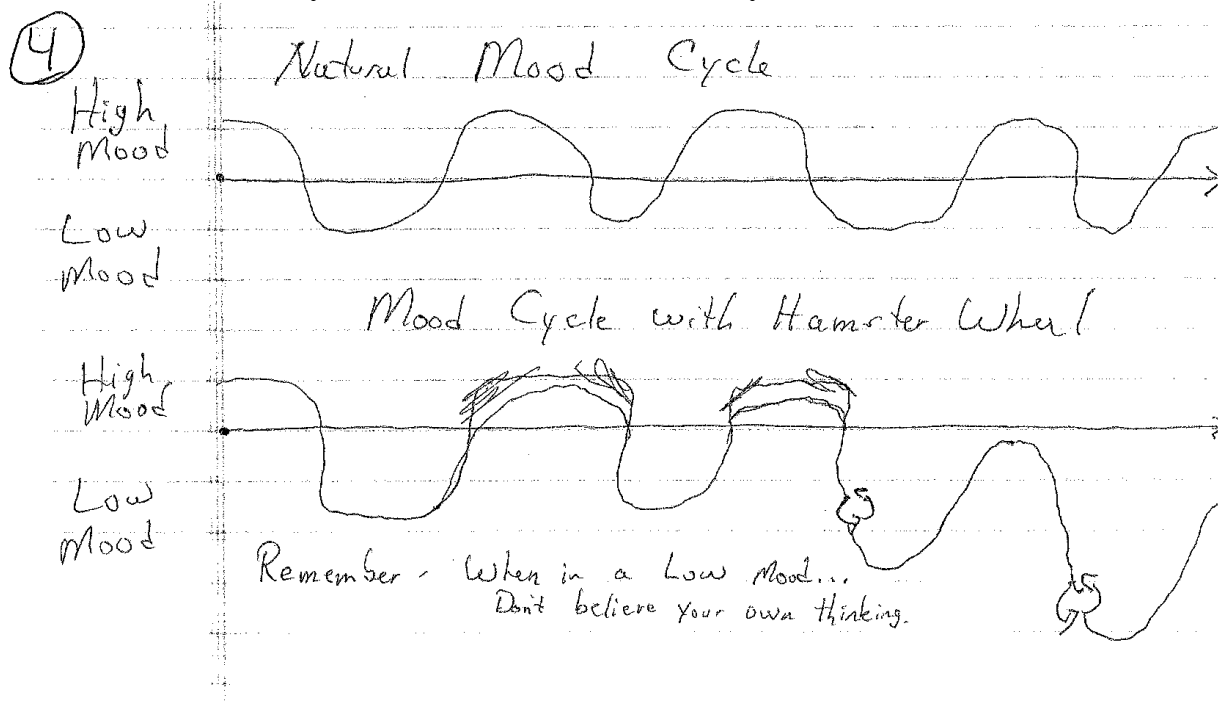 4
Natural Mood Cycle
High
Mood
Low
Mood
Mood Cycle with Hamster Wheel
High
Mood
Low
Mood
Remember - When in a Low Mood...
Don't believe your own thinking.